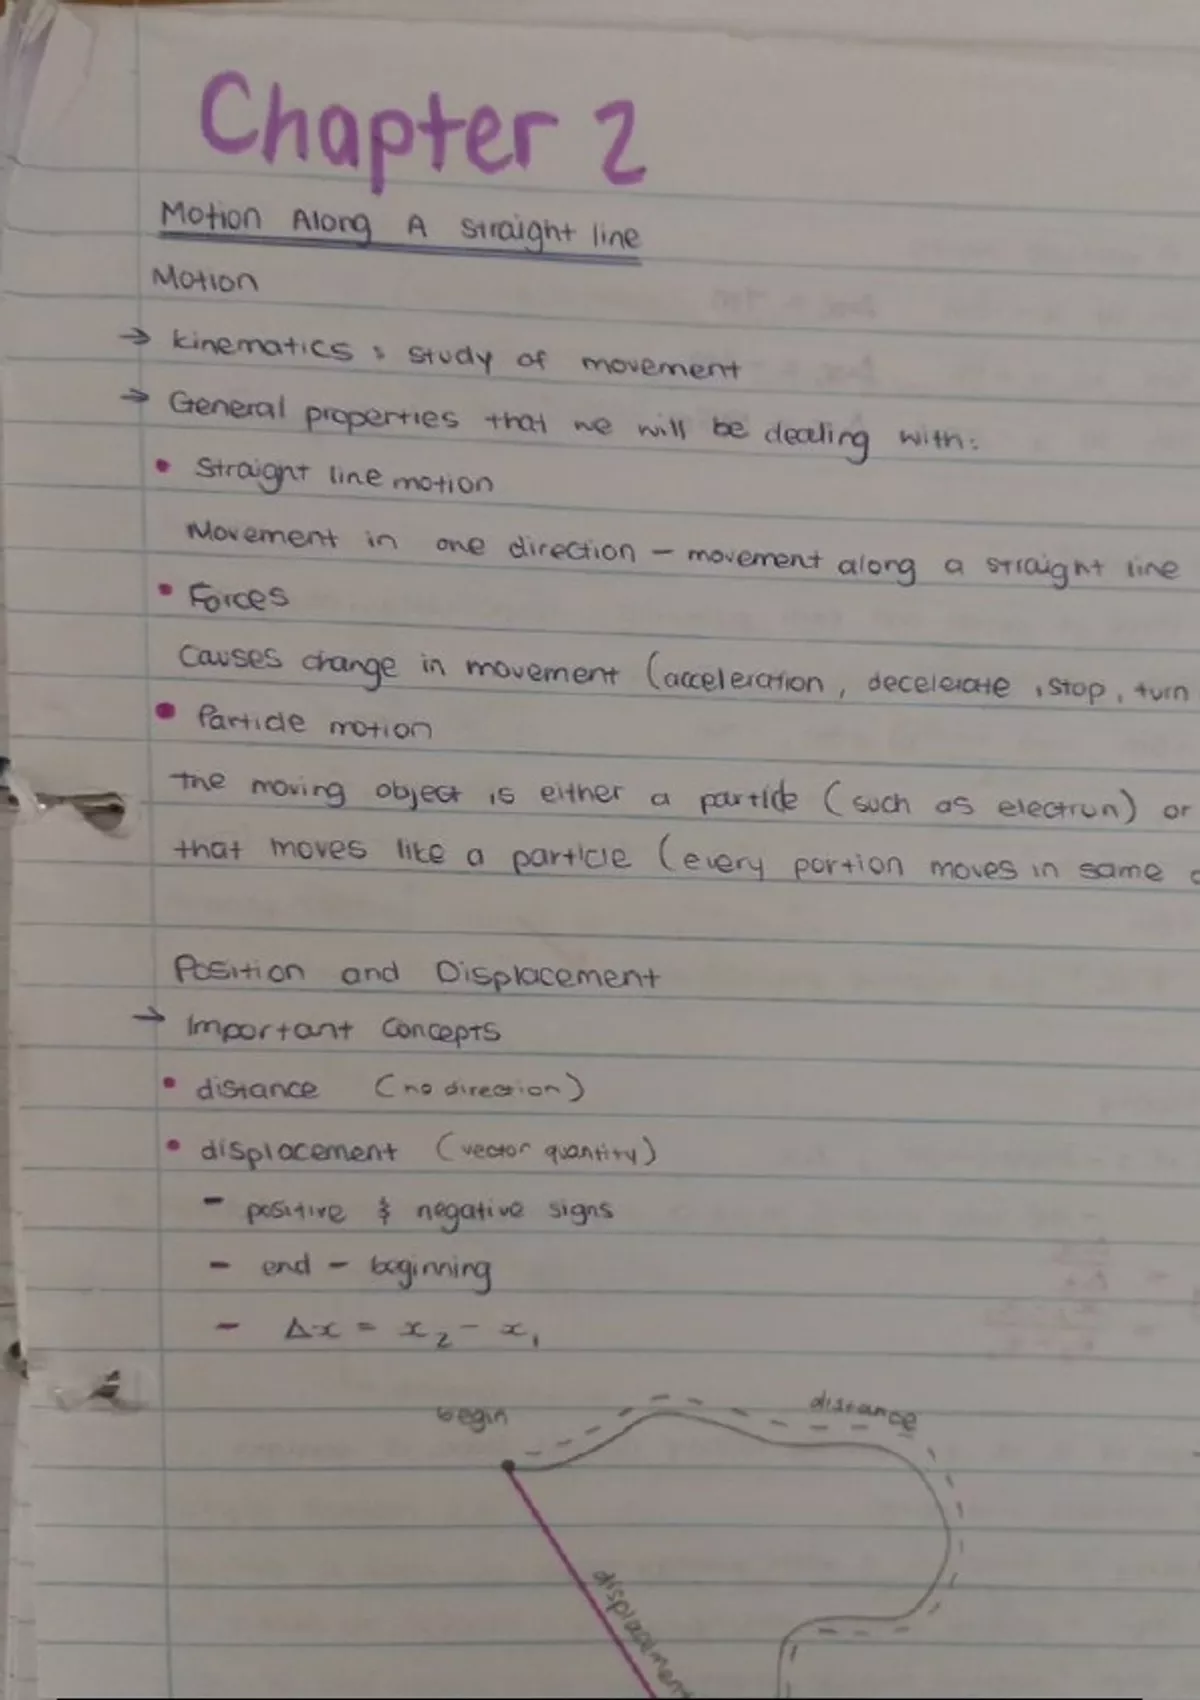 Chapter 2
Motion Along A straight line
Motion
→ kinematics : study of movement
→ General properties that we will be dealing with:
• Straight line motion
Movement in one direction – movement along a straight line
• Forces
Causes change in movement (acceleration, decelerate, stop, turn
• Particle motion
the moving object is either a particle (such as electron) or
that moves like a particle (every portion moves in same
Position and Displacement
→ Important Concepts
• distance (no direction)
• displacement (vector quantity)
- positive & negative signs
- end - beginning
- Δx = x₂ - x₁
begin
distance
displacement